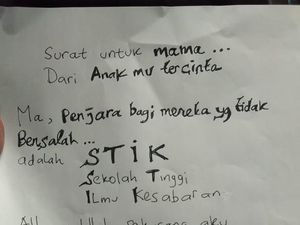 Surat untuk mama ...
Dari Anak mu tercinta
Ma, Penjara bagi mereka yg tidak
Bersalah ...
adalah STIK
Sekolah Tinggi
Ilmu Kesabaran
aku